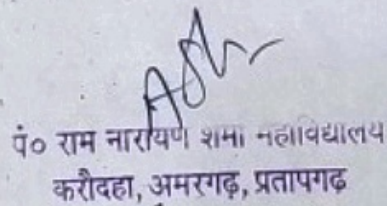 पं० राम नारायण शर्मा महाविद्यालय
करौदहा, अमरगढ़, प्रतापगढ़